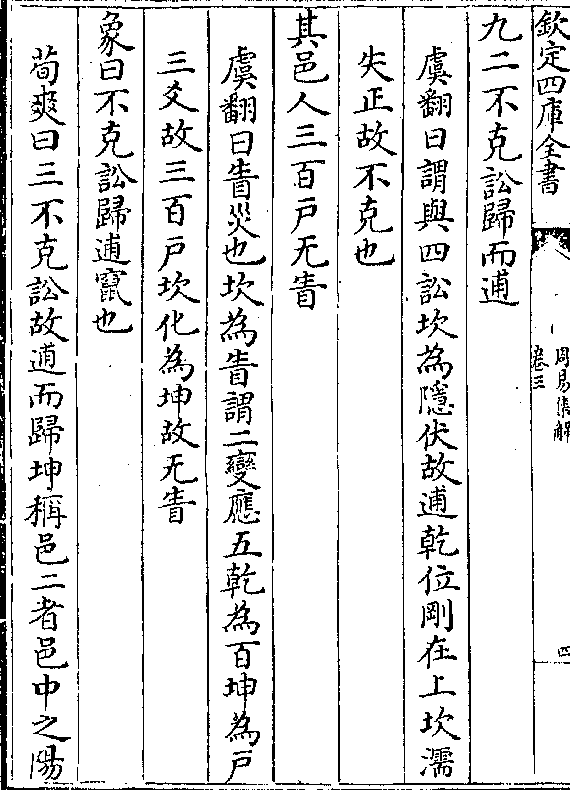 欽定四庫全書
周易集解
卷三
四
九二不克訟歸而逋
虞翻曰謂與四訟坎為隱伏故逋乾位剛在上坎濡
失正故不克也
其邑人三百戸无眚
虞翻曰眚災也坎為眚謂二變應五乾為百坤為戸
三爻故三百戸坎化為坤故无眚
象曰不克訟歸逋竄也
荀爽曰三不克訟故逋而歸坤稱邑二者邑中之陽